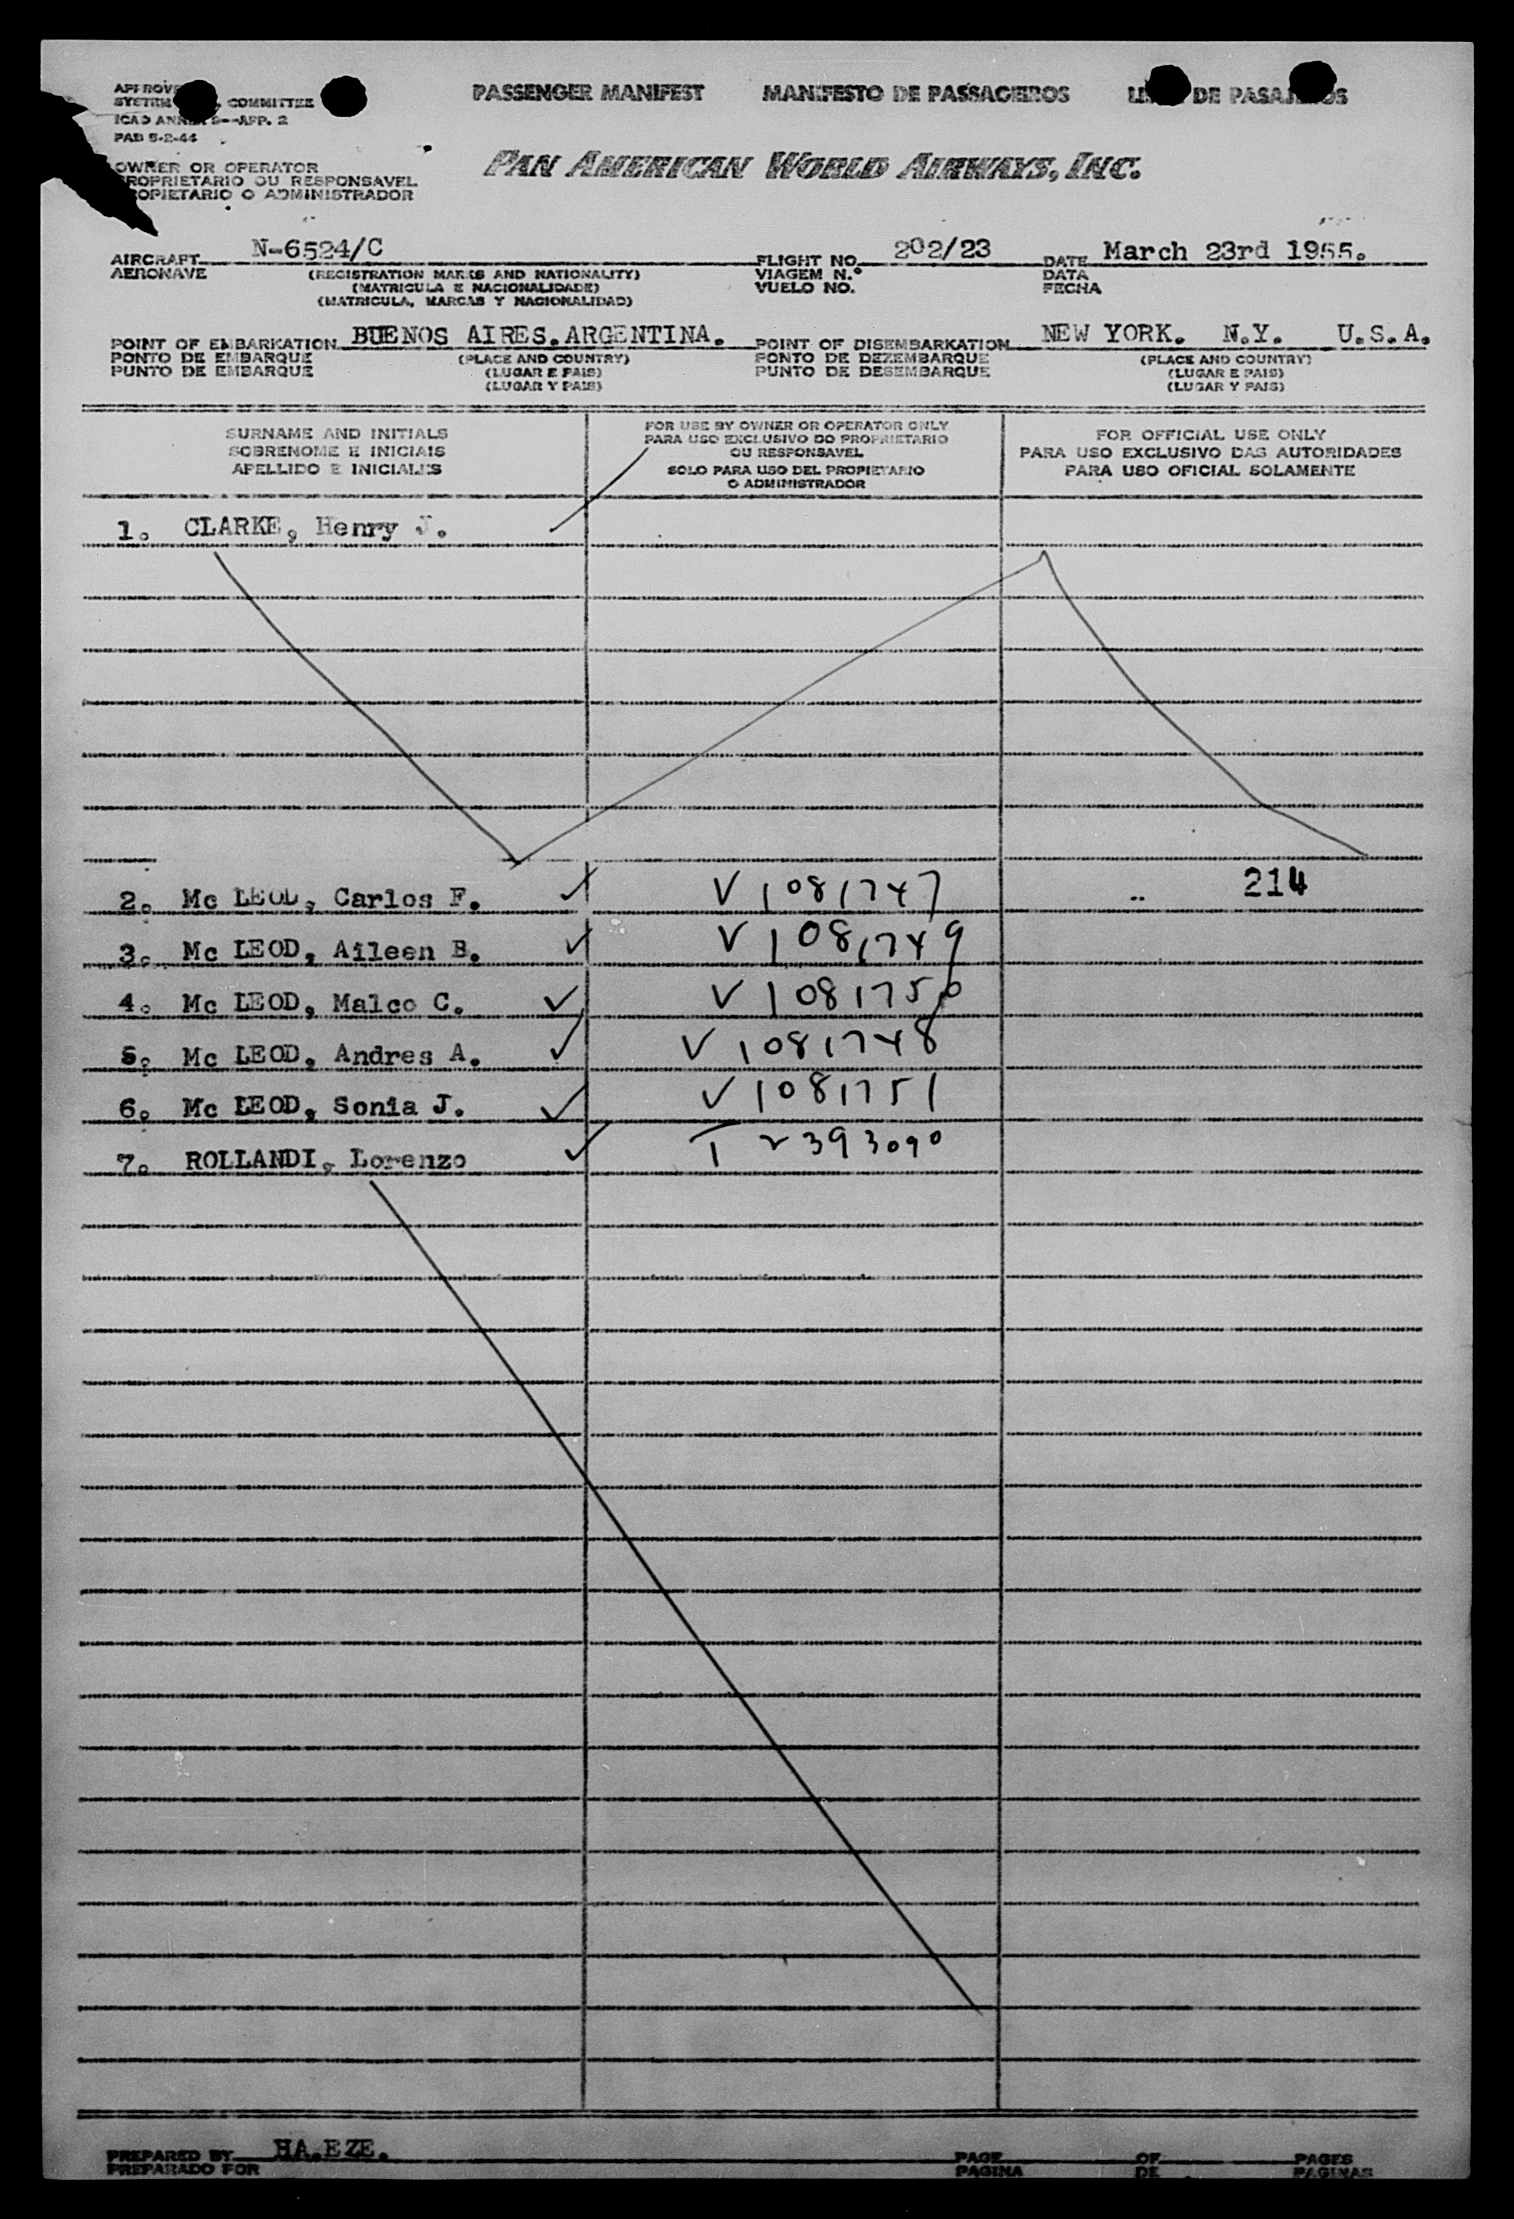 PASSENGER MANIFEST MANIFESTO DE PASSAGEIROS DE
COMMITTEE
ICAO APP. 2
PAD 5-2-44
PAN AMERICAN WORLD AIRWAYS, INC.
OWNER OR OPERATOR
PROPRIETARIO OU RESPONSAVEL
PROPIETARIO O ADMINISTRADOR
AIRCRAFT N-6524/C FLIGHT NO. 202/23 DATE March 23rd 1955.
AERONAVE (REGISTRATION MARKS AND NATIONALITY) VIAGEM N.º DATA
(MATRICULA E NACIONALIDADE) VUELO NO. FECHA
(MATRICULA, MARCAS Y NACIONALIDAD)
POINT OF EMBARKATION BUENOS AIRES.ARGENTINA. POINT OF DISEMBARKATION NEW YORK. N.Y. U.S.A.
PONTO DE EMBARQUE (PLACE AND COUNTRY) PONTO DE DEZEMBARQUE (PLACE AND COUNTRY)
PUNTO DE EMBARQUE (LUGAR E PAIS) PUNTO DE DESEMBARQUE (LUGAR E PAIS)
(LUGAR Y PAIS) (LUGAR Y PAIS)
SURNAME AND INITIALS
SOBRENOME E INICIAIS
APELLIDO E INICIALES
FOR USE BY OWNER OR OPERATOR ONLY
PARA USO EXCLUSIVO DO PROPRIETARIO
OU RESPONSAVEL
SOLO PARA USO DEL PROPIETARIO
O ADMINISTRADOR
FOR OFFICIAL USE ONLY
PARA USO EXCLUSIVO DAS AUTORIDADES
PARA USO OFICIAL SOLAMENTE
1. CLARKE, Henry J.
2. Mc LEOD, Carlos F. V 1081747 214
3. Mc LEOD, Aileen B. V 1081749
4. Mc LEOD, Malco C. V 1081750
5. Mc LEOD, Andres A. V 1081748
6. Mc LEOD, Sonia J. V 1081751
7. ROLLANDI, Lorenzo T 2393090
PREPARED BY HA.EZE. PAGE OF PAGES
PREPARADO POR PAGINA DE PAGINAS